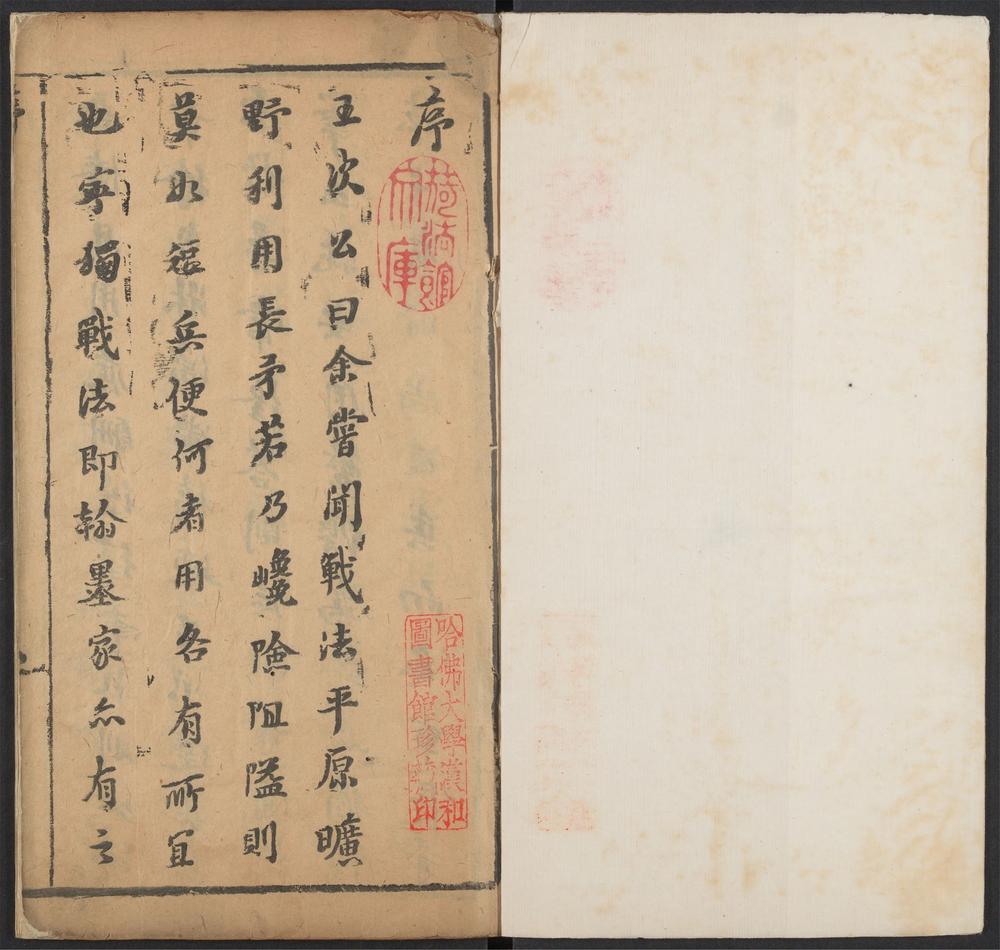 序
王次公曰余嘗聞戰法平原曠
野利用長矛若乃巉險阻隘則
莫如短兵便何者用各有所宜
也寧獨戰法即翰墨家亦有之
哈佛大學漢和
圖書館珍藏印